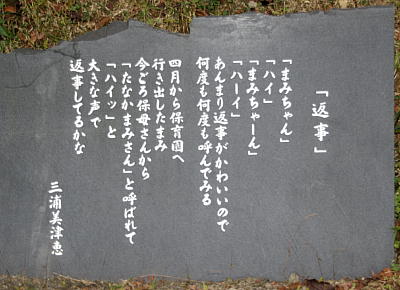 「返事」
「まみちゃん」
「ハイ」
「まみちゃーん」
「ハーイ」
あんまり返事がかわいいので
何度も何度も呼んでみる
四月から保育園へ
行き出したまみ
今ごろ保母さんから
「たなかまみさん」と呼ばれて
「ハイッ」と
大きな声で
返事してるかな
三浦美津恵